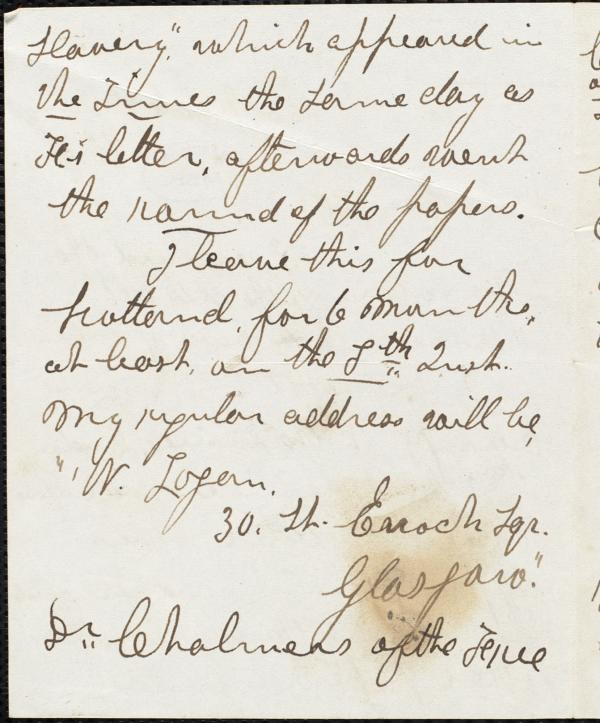 Slavery", which appeared in
the Times the same day as
His letter, afterwards went
the round of the papers.
I leave this for
Scotland, for 6 months,
at least, on the 8th Inst.
My regular address will be,
"W. Logan,
30. St. Enoch Sqr.
Glasgow."
Dr. Chalmers of the Free